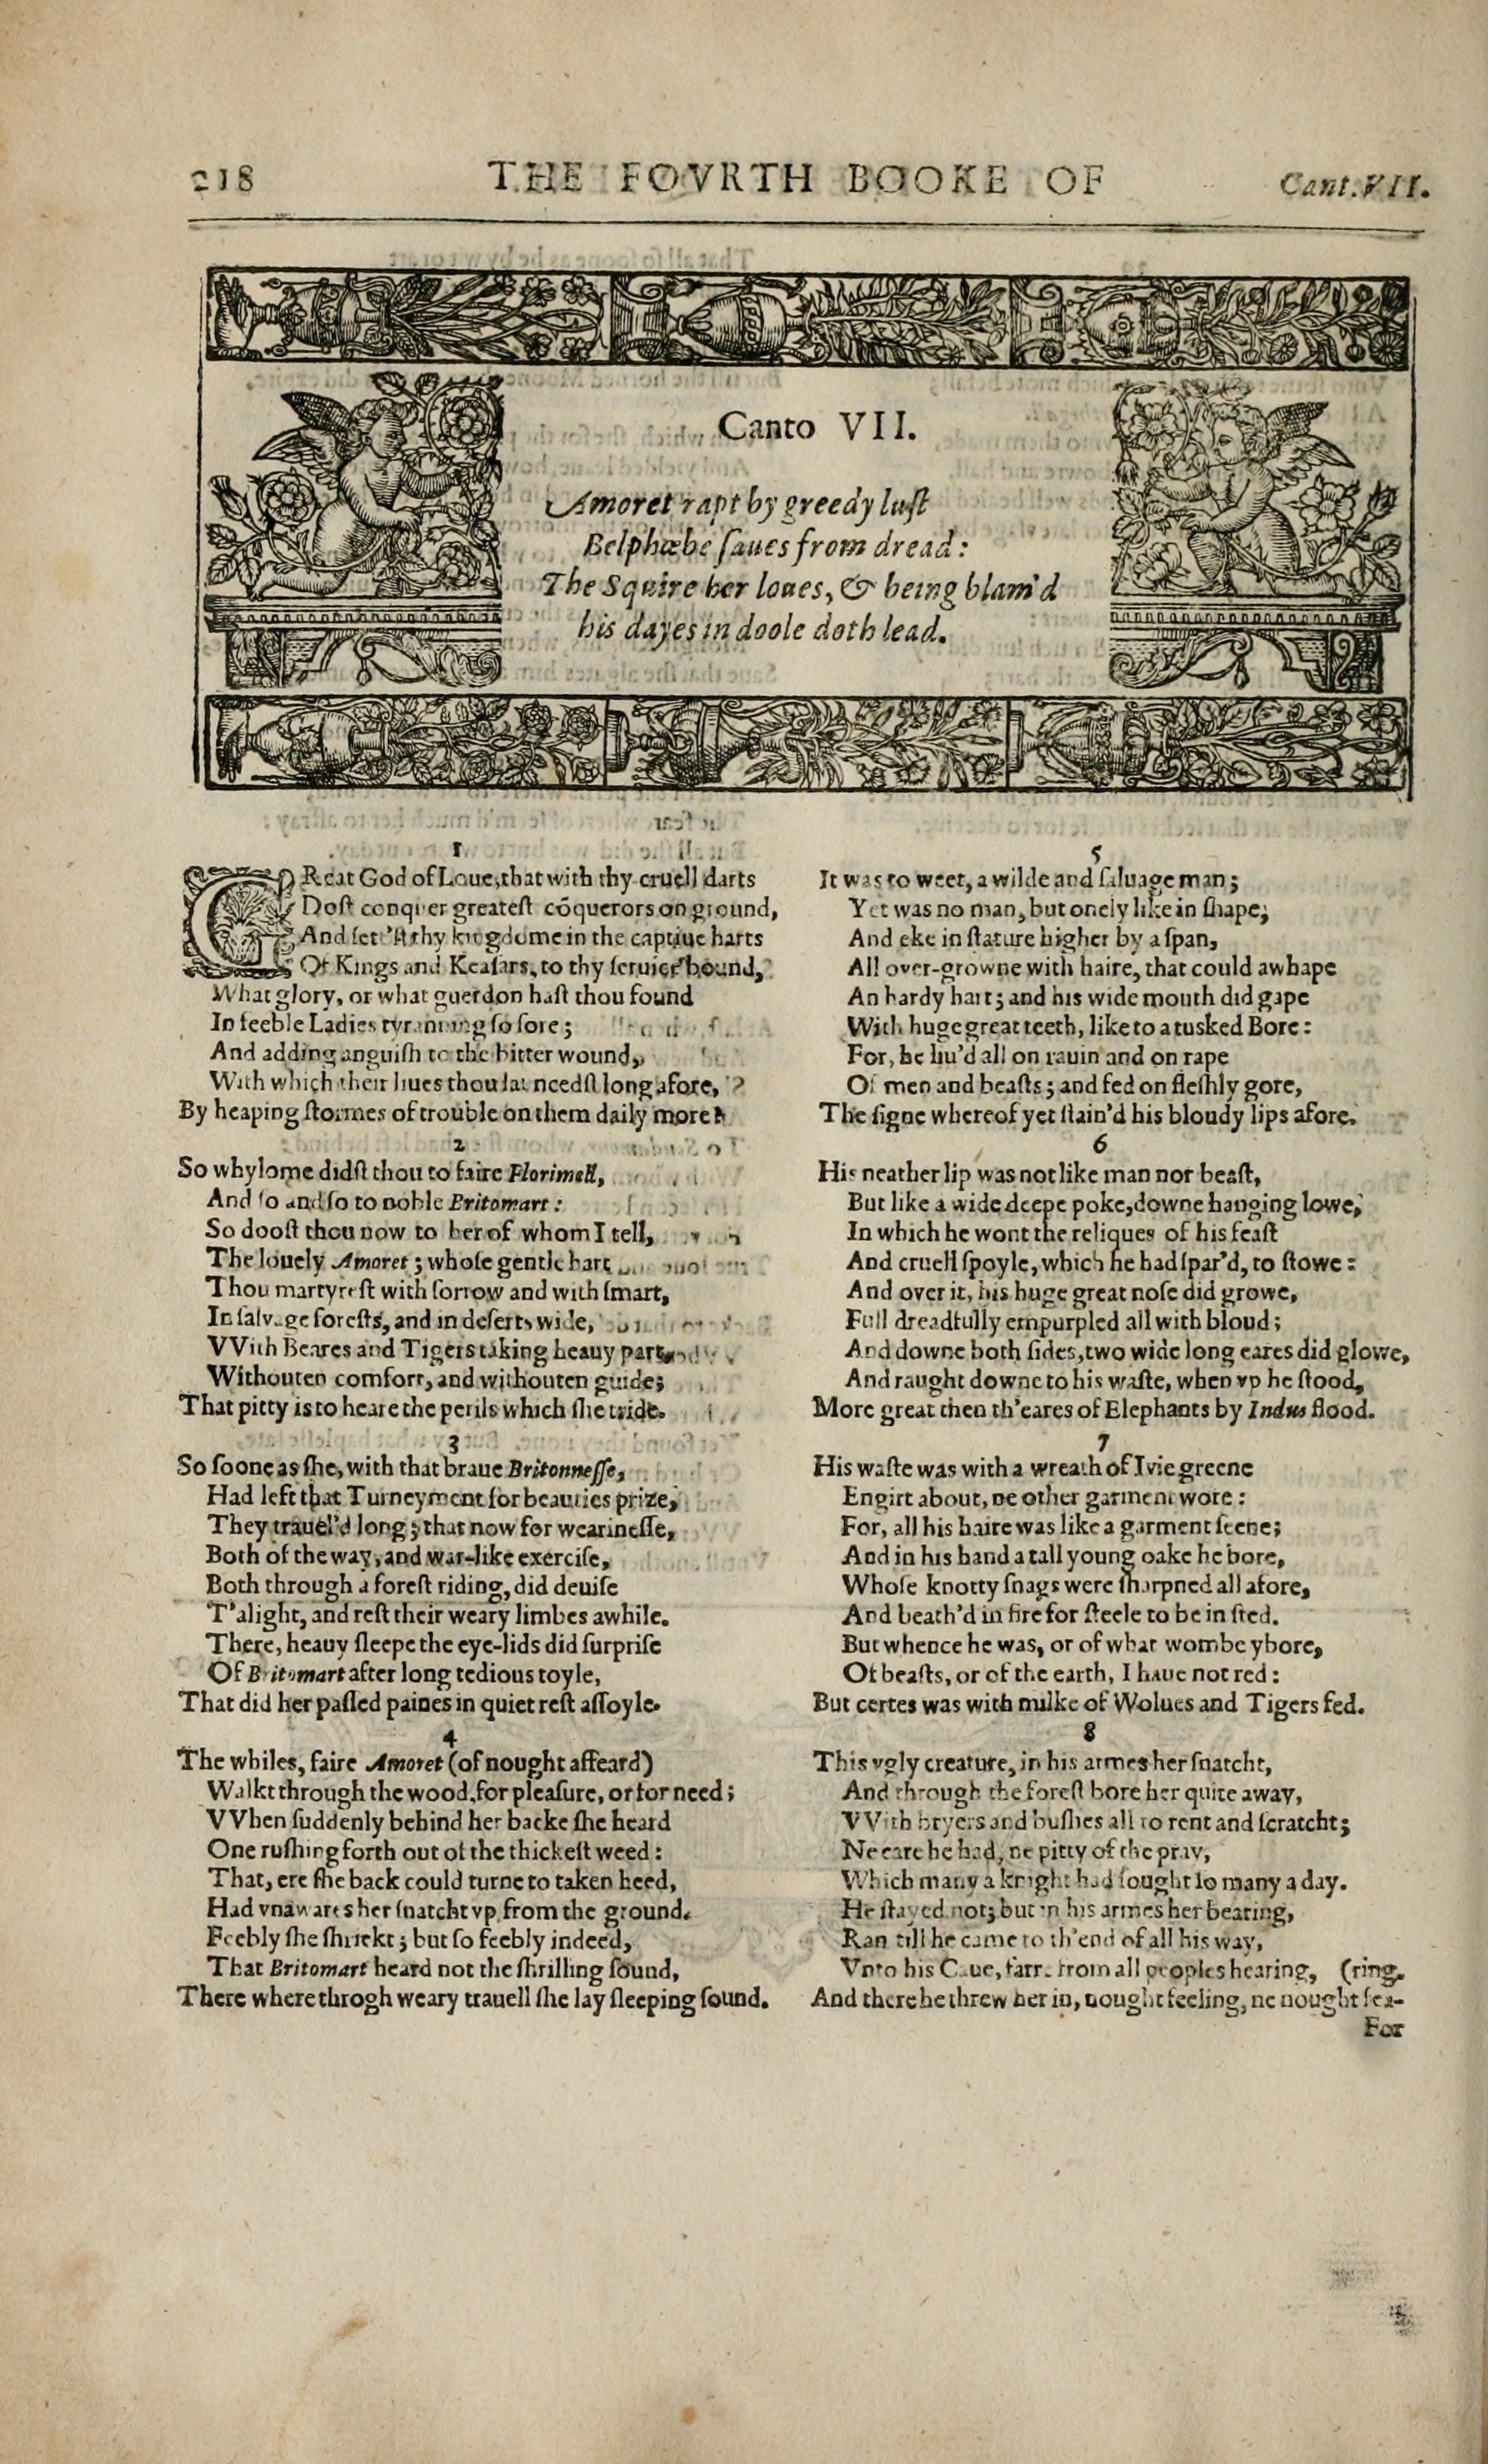 218 THE FOVRTH BOOKE OF Cant. VII.
Canto VII.
Amoret rapt by greedy luſt
Belphœbe ſaues from dread:
The Squire her loues, & being blam'd
his dayes in doole doth lead.
1
GReat God of Loue, that with thy cruell darts
Doſt conquer greateſt cōquerors on ground,
And ſett'ſt thy kingdome in the captiue harts
Of Kings and Keaſars, to thy ſeruice bound,
What glory, or what guerdon haſt thou found
In feeble Ladies tyranning ſo ſore;
And adding anguiſh to the bitter wound,
With which their liues thou lancedſt long afore,
By heaping ſtormes of trouble on them daily more?
2
So whylome didſt thou to faire Florimell,
And ſo and ſo to noble Britomart:
So dooſt thou now to her of whom I tell,
The louely Amoret; whoſe gentle hart
Thou martyreſt with ſorrow and with ſmart,
In ſalvage foreſts, and in deſerts wide,
VVith Beares and Tigers taking heauy part,
Withouten comfort, and withouten guide;
That pitty is to heare the perils which ſhe tride.
3
So ſoone as ſhe, with that braue Britonneſſe,
Had left that Turneyment for beauties prize,
They trauel'd long; that now for wearineſſe,
Both of the way, and war-like exerciſe,
Both through a foreſt riding, did deuiſe
T'alight, and reſt their weary limbes awhile.
There, heauy ſleepe the eye-lids did ſurpriſe
Of Britomart after long tedious toyle,
That did her paſſed paines in quiet reſt aſſoyle.
4
The whiles, faire Amoret (of nought affeard)
Walkt through the wood, for pleaſure, or for need;
VVhen ſuddenly behind her backe ſhe heard
One ruſhing forth out of the thickeſt weed:
That, ere ſhe back could turne to taken heed,
Had vnawares her ſnatcht vp from the ground.
Feebly ſhe ſhriekt; but ſo feebly indeed,
That Britomart heard not the ſhrilling ſound,
There where throgh weary trauell ſhe lay ſleeping ſound.
5
It was to weet, a wilde and ſaluage man;
Yet was no man, but onely like in ſhape,
And eke in ſtature higher by a ſpan,
All over-growne with haire, that could awhape
An hardy hart; and his wide mouth did gape
With huge great teeth, like to a tusked Bore:
For, he liu'd all on rauin and on rape
Of men and beaſts; and fed on fleſhly gore,
The ſigne whereof yet ſtain'd his bloudy lips afore.
6
His neather lip was not like man nor beaſt,
But like a wide deepe poke, downe hanging lowe,
In which he wont the reliques of his feaſt
And cruell ſpoyle, which he had ſpar'd, to ſtowe:
And over it, his huge great noſe did growe,
Full dreadfully empurpled all with bloud;
And downe both ſides, two wide long eares did glowe,
And raught downe to his waſte, when vp he ſtood,
More great then th'eares of Elephants by Indus flood.
7
His waſte was with a wreath of Ivie greene
Engirt about, ne other garment wore:
For, all his haire was like a garment ſeene;
And in his hand a tall young oake he bore,
Whoſe knotty ſnags were ſharpned all afore,
And beath'd in fire for ſteele to be in ſted.
But whence he was, or of what wombe ybore,
Of beaſts, or of the earth, I haue not red:
But certes was with milke of Wolues and Tigers fed.
8
This vgly creature, in his armes her ſnatcht,
And through the foreſt bore her quite away,
VVith bryers and buſhes all to rent and ſcratcht;
Ne care he had, ne pitty of the pray,
Which many a knight had ſought ſo many a day.
He ſtayed not; but in his armes her bearing,
Ran till he came to th'end of all his way,
Vnto his Caue, farre from all peoples hearing, (ring.
And there he threw her in, nought feeling, ne nought fea-
For